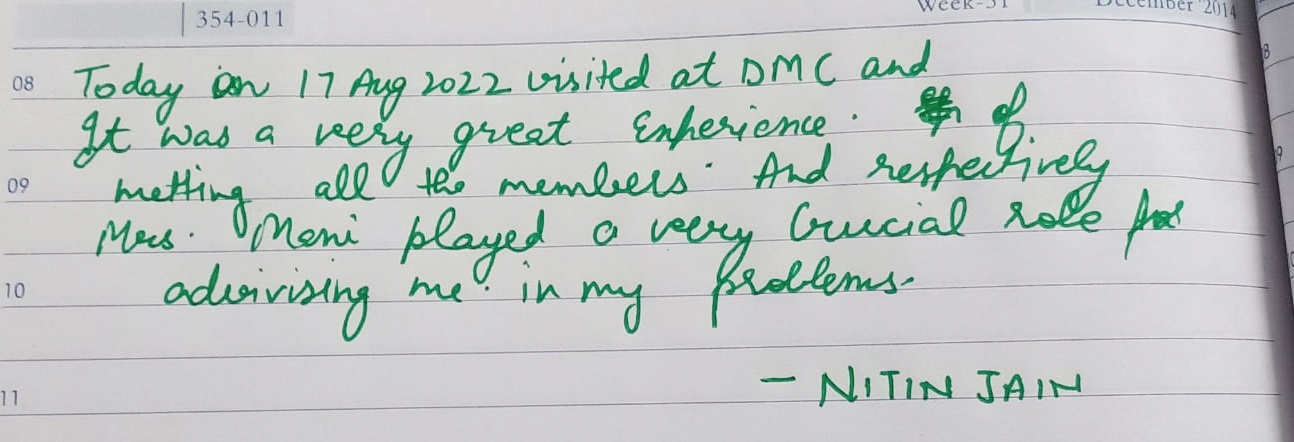 354-011
Week-51
December '2014
08 Today on 17 Aug 2022 visited at DMC and
It was a very great Experience. of
09 metting all the members. And respectively
Mrs. Moni played a very Crucial role for
10 advivising me in my problems.
11 - NITIN JAIN